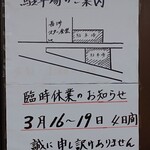 駐車場のご案内
駐車場
駐車場
臨時休業のお知らせ
3月16〜19日 4日間
誠に申し訳ありません